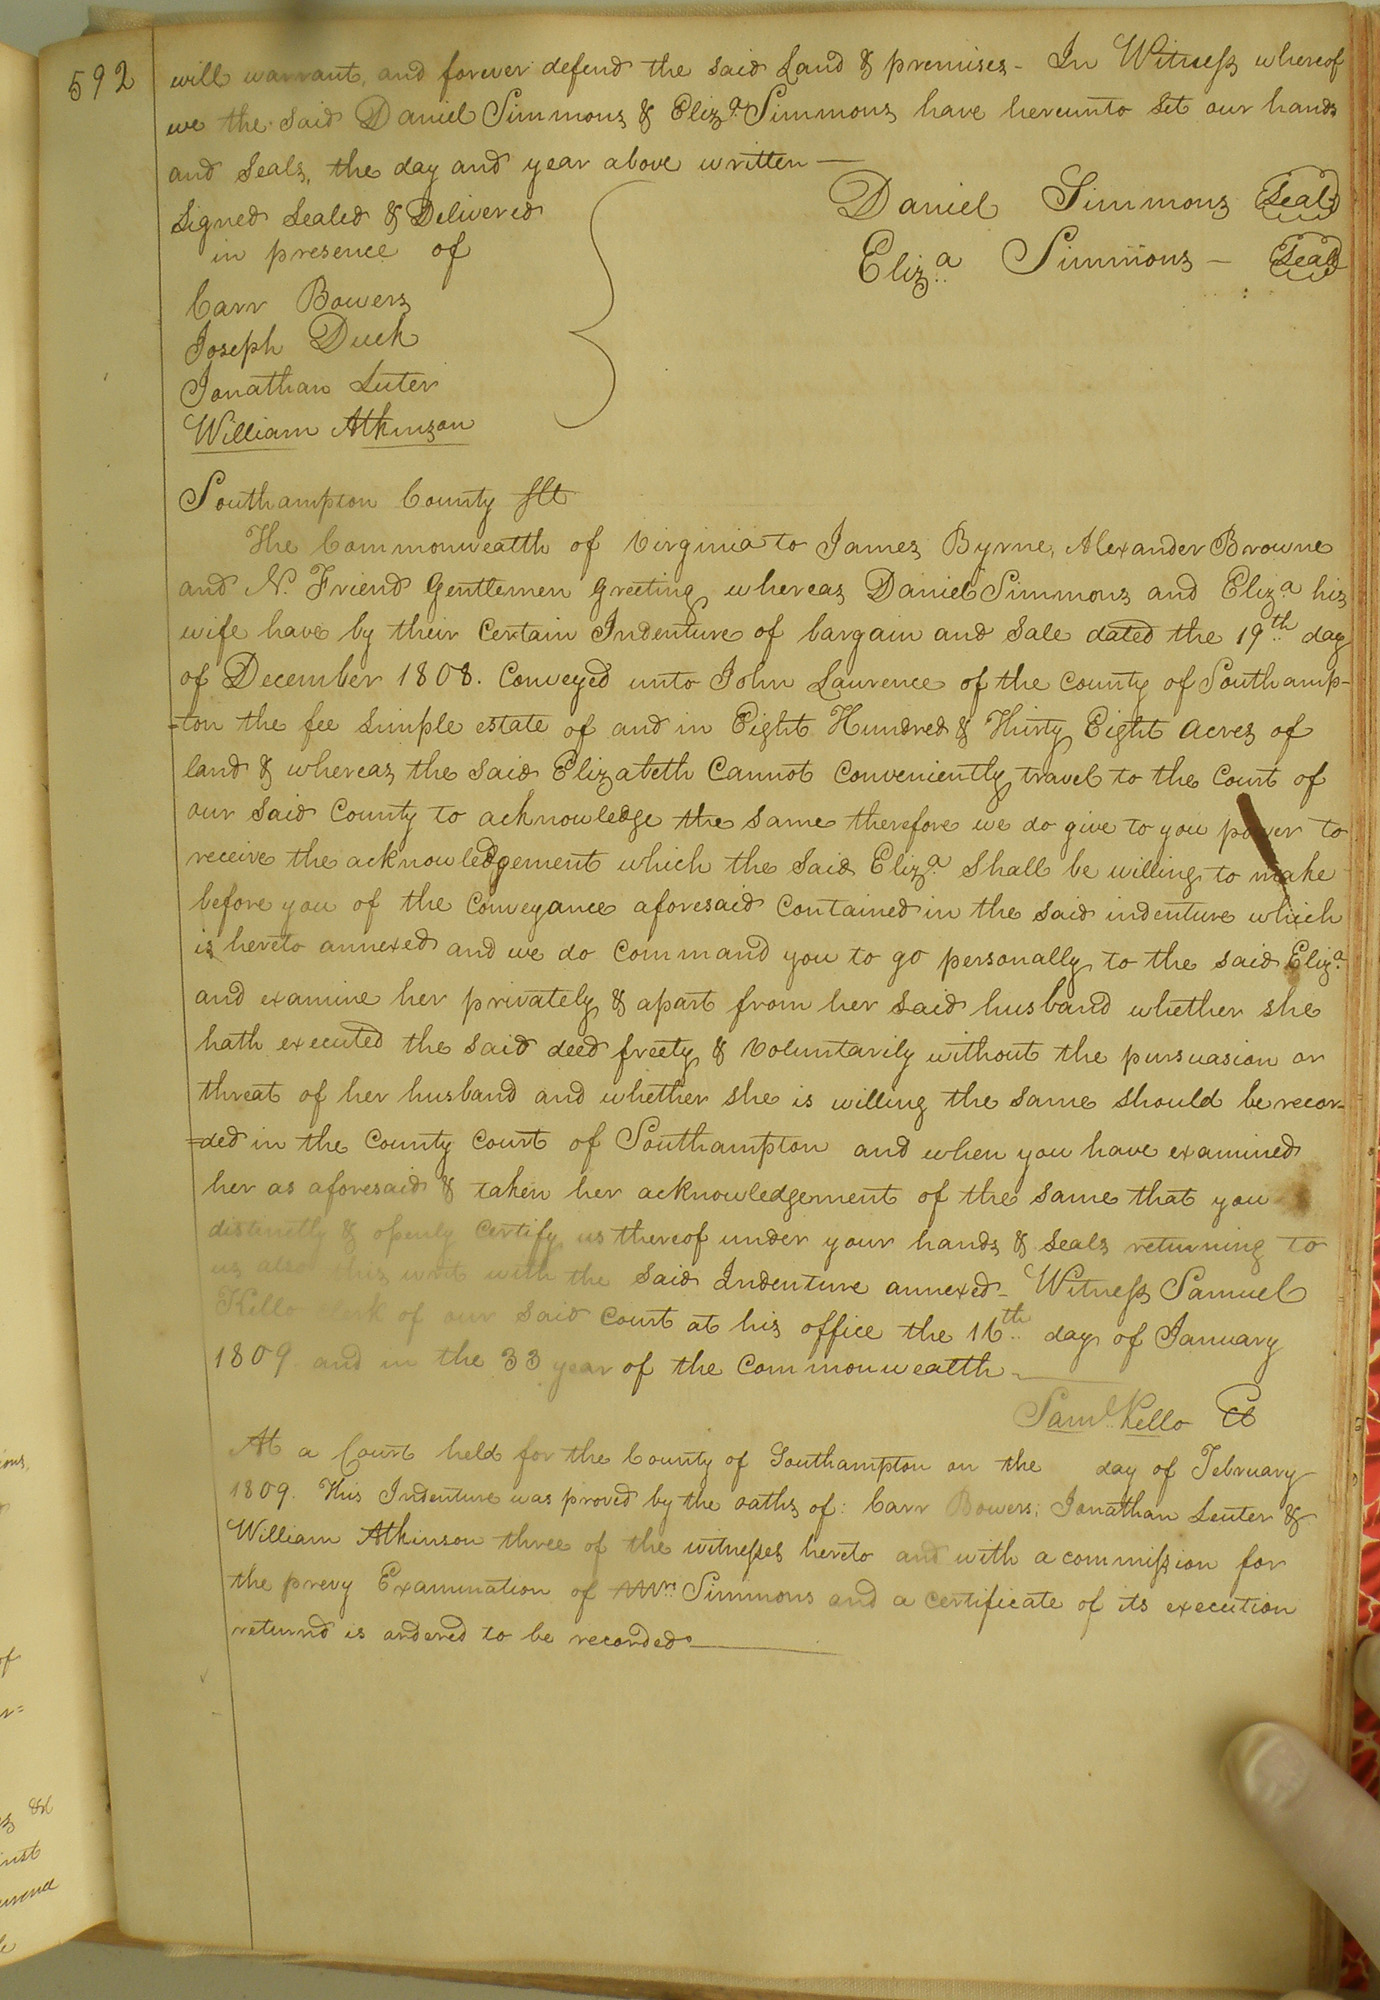 592
will warrant, and forever defend the said Land & premises - In Witness whereof
we the said Daniel Simmons & Eliza. Simmons have hereunto set our hands
and Seals, the day and year above written —
Daniel Simmons Seal
Eliza. Simmons — Seal
Signed Sealed & Delivered
in presence of
Carr Bowers
Joseph Duck
Jonathan Luter
William Atkinson
Southampton County Sct
The Commonwealth of Virginia to James Byrne, Alexander Browne
and N. Friend Gentlemen Greeting, whereas Daniel Simmons and Eliza. his
wife have by their Certain Indenture of bargain and Sale dated the 19th. day
of December 1808. Conveyed unto John Laurence of the County of Southamp-
-ton the fee Simple estate of and in Eight Hundred & Thirty Eight Acres of
land & whereas the Said Elizabeth Cannot Conveniently travel to the Court of
our Said County to acknowledge the Same therefore we do give to you power to
receive the acknowledgement which the Said Eliza. Shall be willing to make
before you of the Conveyance aforesaid Contained in the Said indenture which
is hereto annexed and we do Command you to go personally to the Said Eliza.
and examine her privately & apart from her Said husband whether she
hath executed the Said deed freely & Voluntarily without the pursuasion or
threat of her husband and whether she is willing the Same Should be recor=
=ded in the County Court of Southampton and when you have examined
her as aforesaid & taken her acknowledgement of the Same that you
distinctly & openly Certify us thereof under your hands & Seals returning to
us also this writ with the Said Indenture annexed - Witness Samuel
Kello Clerk of our Said Court at his office the 16th. day of January
1809 and in the 33 year of the Commonwealth -
Saml. Kello Cl
At a Court held for the County of Southampton on the day of February
1809. This Indenture was proved by the oaths of: Carr Bowers, Jonathan Leuter &
William Atkinson three of the witnesses hereto and with a commission for
the prevy Examination of Mrs. Simmons and a Certificate of its execution
returnd is ordered to be recorded —